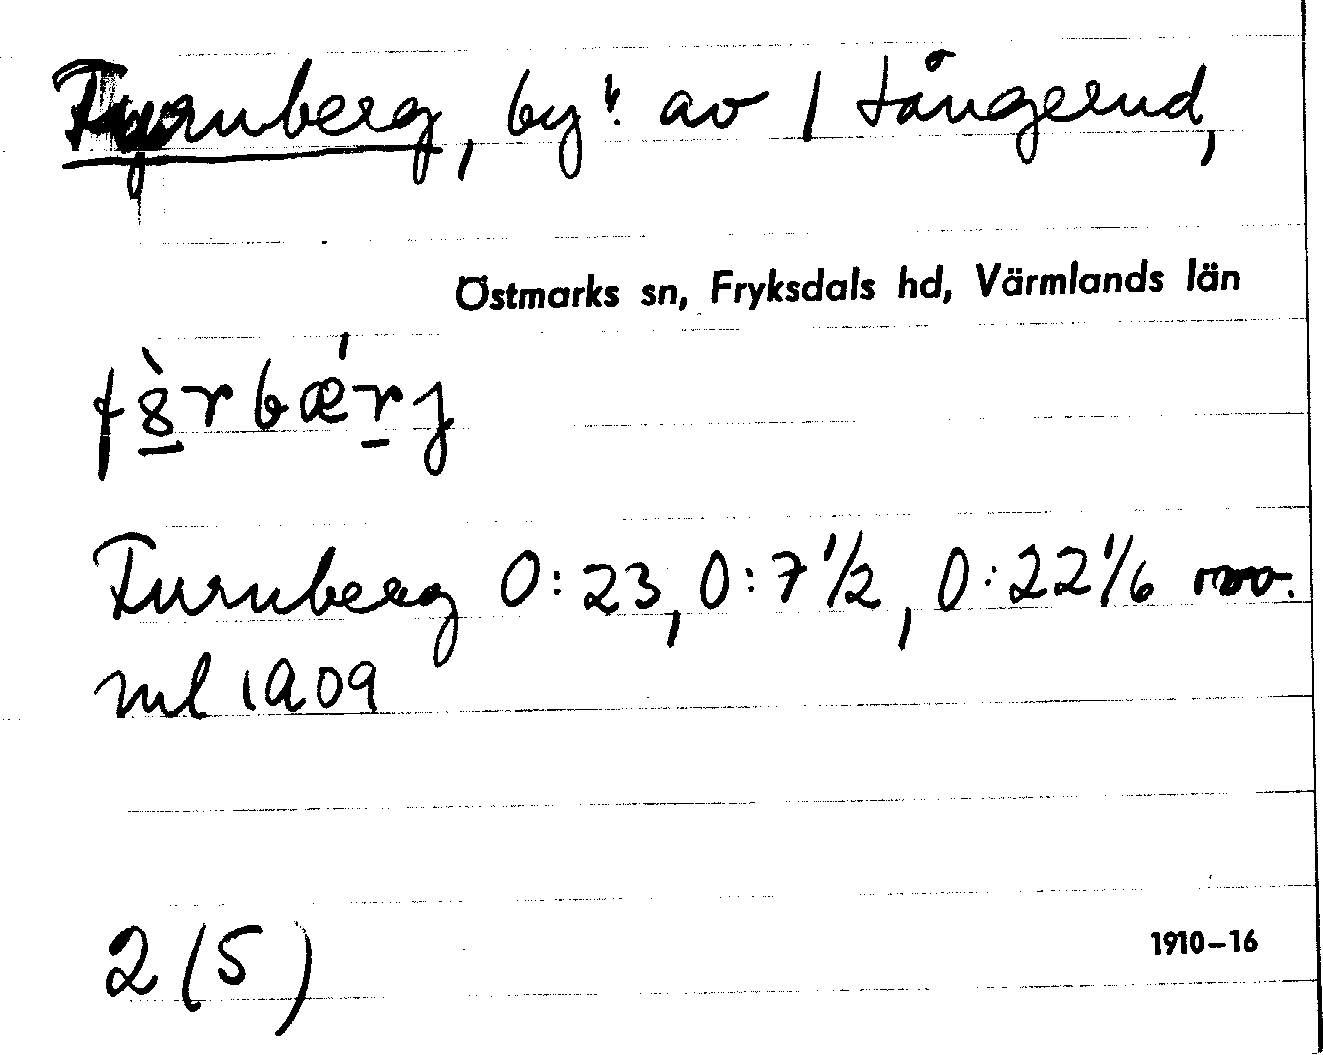 Furnberg, by. av 1 Långerud,
Östmarks sn, Fryksdals hd, Värmlands län
f8̀rbǽrj
Furnberg 0:23, 0:7 1/2, 0:22 1/6
ml 1909
2 (5)
1910–16